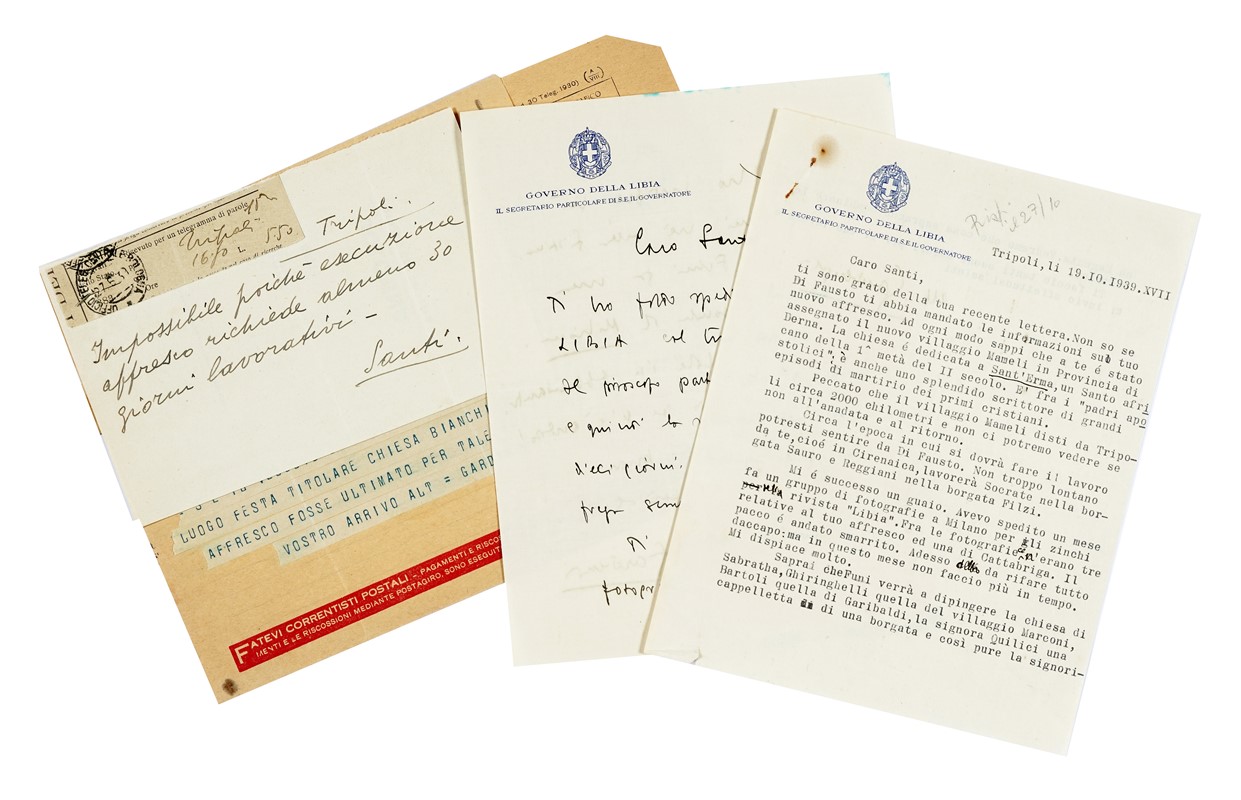 30 Teleg. 1930) (A VIII)
Ricevuto per un telegramma di parole
Tripoli
550
Ore
Tripoli.
Impossibile poiché esecuzione
affresco richiede almeno 30
giorni lavorativi -
Santi.
LUOGO FESTA TITOLARE CHIESA BIANCHI
AFFRESCO FOSSE ULTIMATO PER TALE
VOSTRO ARRIVO ALT = GARD
FATEVI CORRENTISTI POSTALI - PAGAMENTI E RISCOS
MENTI E LE RISCOSSIONI MEDIANTE POSTAGIRO, SONO ESEGUIT
GOVERNO DELLA LIBIA
IL SEGRETARIO PARTICOLARE DI S.E. IL GOVERNATORE
Caro San
Ti ho fatto spedi
LIBIA col
Il piroscafo part
e quindi la
dieci giorni.
Ti
GOVERNO DELLA LIBIA
IL SEGRETARIO PARTICOLARE DI S.E. IL GOVERNATORE
27/10
Tripoli,li 19.IO.1939.XVII
Caro Santi,
ti sono grato della tua recente lettera.Non so se
Di Fausto ti abbia mandato le informazioni sul tuo
nuovo affresco. Ad ogni modo sappi che a te é stato
assegnato il nuovo villaggio Mameli in Provincia di
Derna. La chiesa é dedicata a Sant'Erma,un Santo afri
cano della 1ª metá del II secolo. E' fra i "padri apo
stolici"; è anche uno splendido scrittore di grandi
episodi di martirio dei primi cristiani.
Peccato che il villaggio Mameli disti da Tripo-
li circa 2000 chilometri e non ci potremo vedere se
non all'anadata e al ritorno.
Circa l'epoca in cui si dovrà fare il lavoro
potresti sentire da Di Fausto. Non troppo lontano
da te,cioé in Cirenaica,lavorerá Socrate nella bor-
gata Sauro e Reggiani nella borgata Filzi.
Mi é successo un guaio. Avevo spedito un mese
fa un gruppo di fotografie a Milano per gli zinchi
rivista "Libia".Fra le fotografie c'erano tre
relative al tuo affresco ed una di Cattabriga. Il
pacco é andato smarrito. Adesso da rifare tutto
daccapo:ma in questo mese non faccio più in tempo.
Mi dispiace molto.
Saprai cheFuni verrà a dipingere la chiesa di
Sabratha,Ghiringhelli quella del villaggio Marconi,
Bartoli quella di Garibaldi,la signora Quilici una
cappelletta di una borgata e così pure la signori-